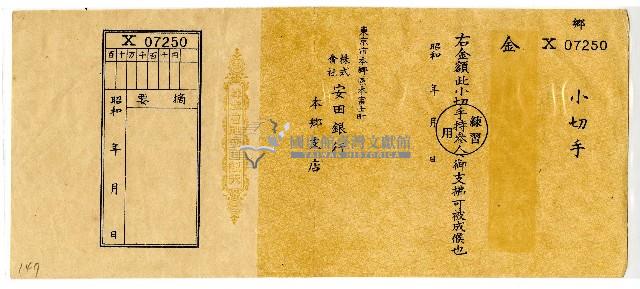 郷
X 07250
小切手
金
右金額此小切手持参人ヘ御支拂可被成候也
練習用
昭和 年 月 日
東京市本郷區本富士町
株式會社 安田銀行
本郷支店
國史館臺灣文獻館
TAIWAN HISTORICA
X 07250
百十万千百十円
摘要
昭和 年 月 日
147